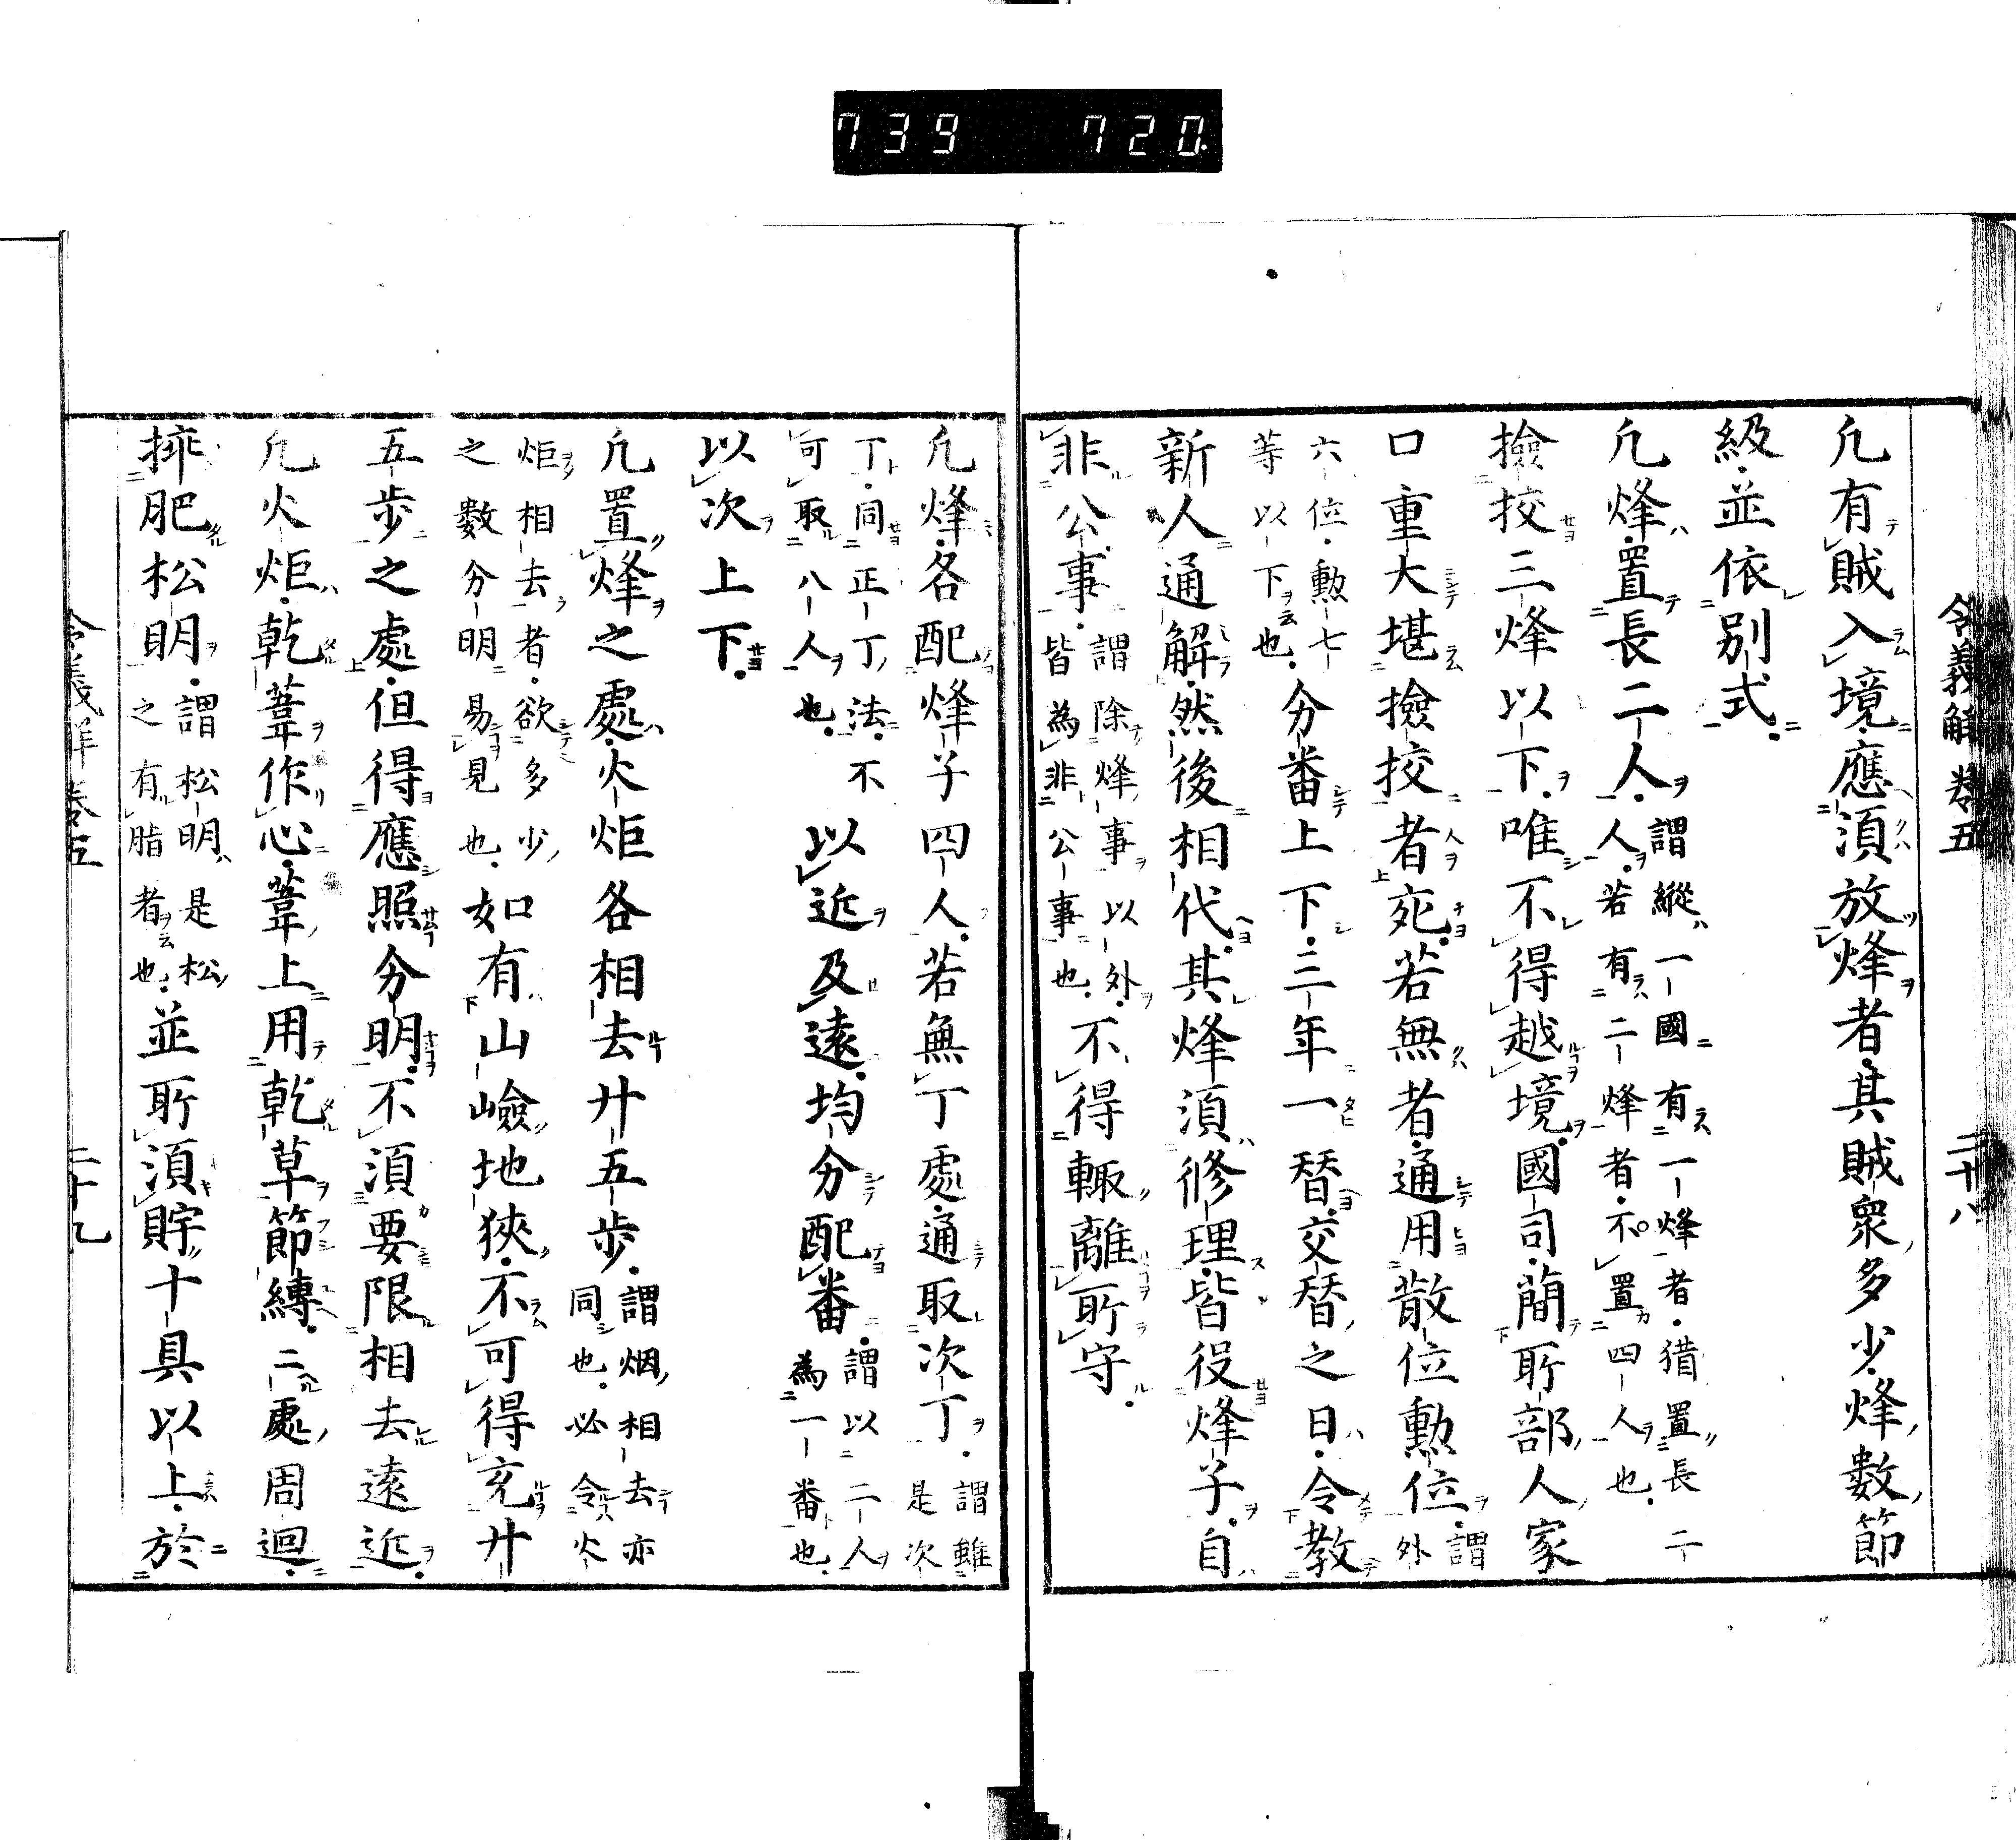 739 720
令義解 卷五 二十八
凢有賊入境應須放烽者其賊衆多少烽數節
級並依別式
凢烽置長二人謂縱一國有一烽者猶置長二
人若有二烽者不置四人也
撿挍三烽以下唯不得越境國司簡所部人家
口重大堪撿挍者宛若無者通用散位勲位謂外
六位勲七
等以下也分番上下三年一替交替之日令教
新人通解然後相代其烽須修理皆役烽子自
非公事謂除烽事以外
皆為非公事也不得輙離所守
凢烽各配烽子四人若無丁處通取次丁謂雖是次
丁同正丁法不
可取八人也以近及遠均分配番謂以二人
為一番也
以次上下
凢置烽之處火炬各相去廿五歩謂烟相去亦
同也必令火
炬相去者欲多少
之數分明易見也如有山嶮地狹不可得充廿
五歩之處但得應照分明不須要限相去遠近
凢火炬乾葦作心葦上用乾草節縛二處周迴
挿肥松明謂松明是松
之有脂者也並所須貯十具以上於
令義解 卷五 二十九